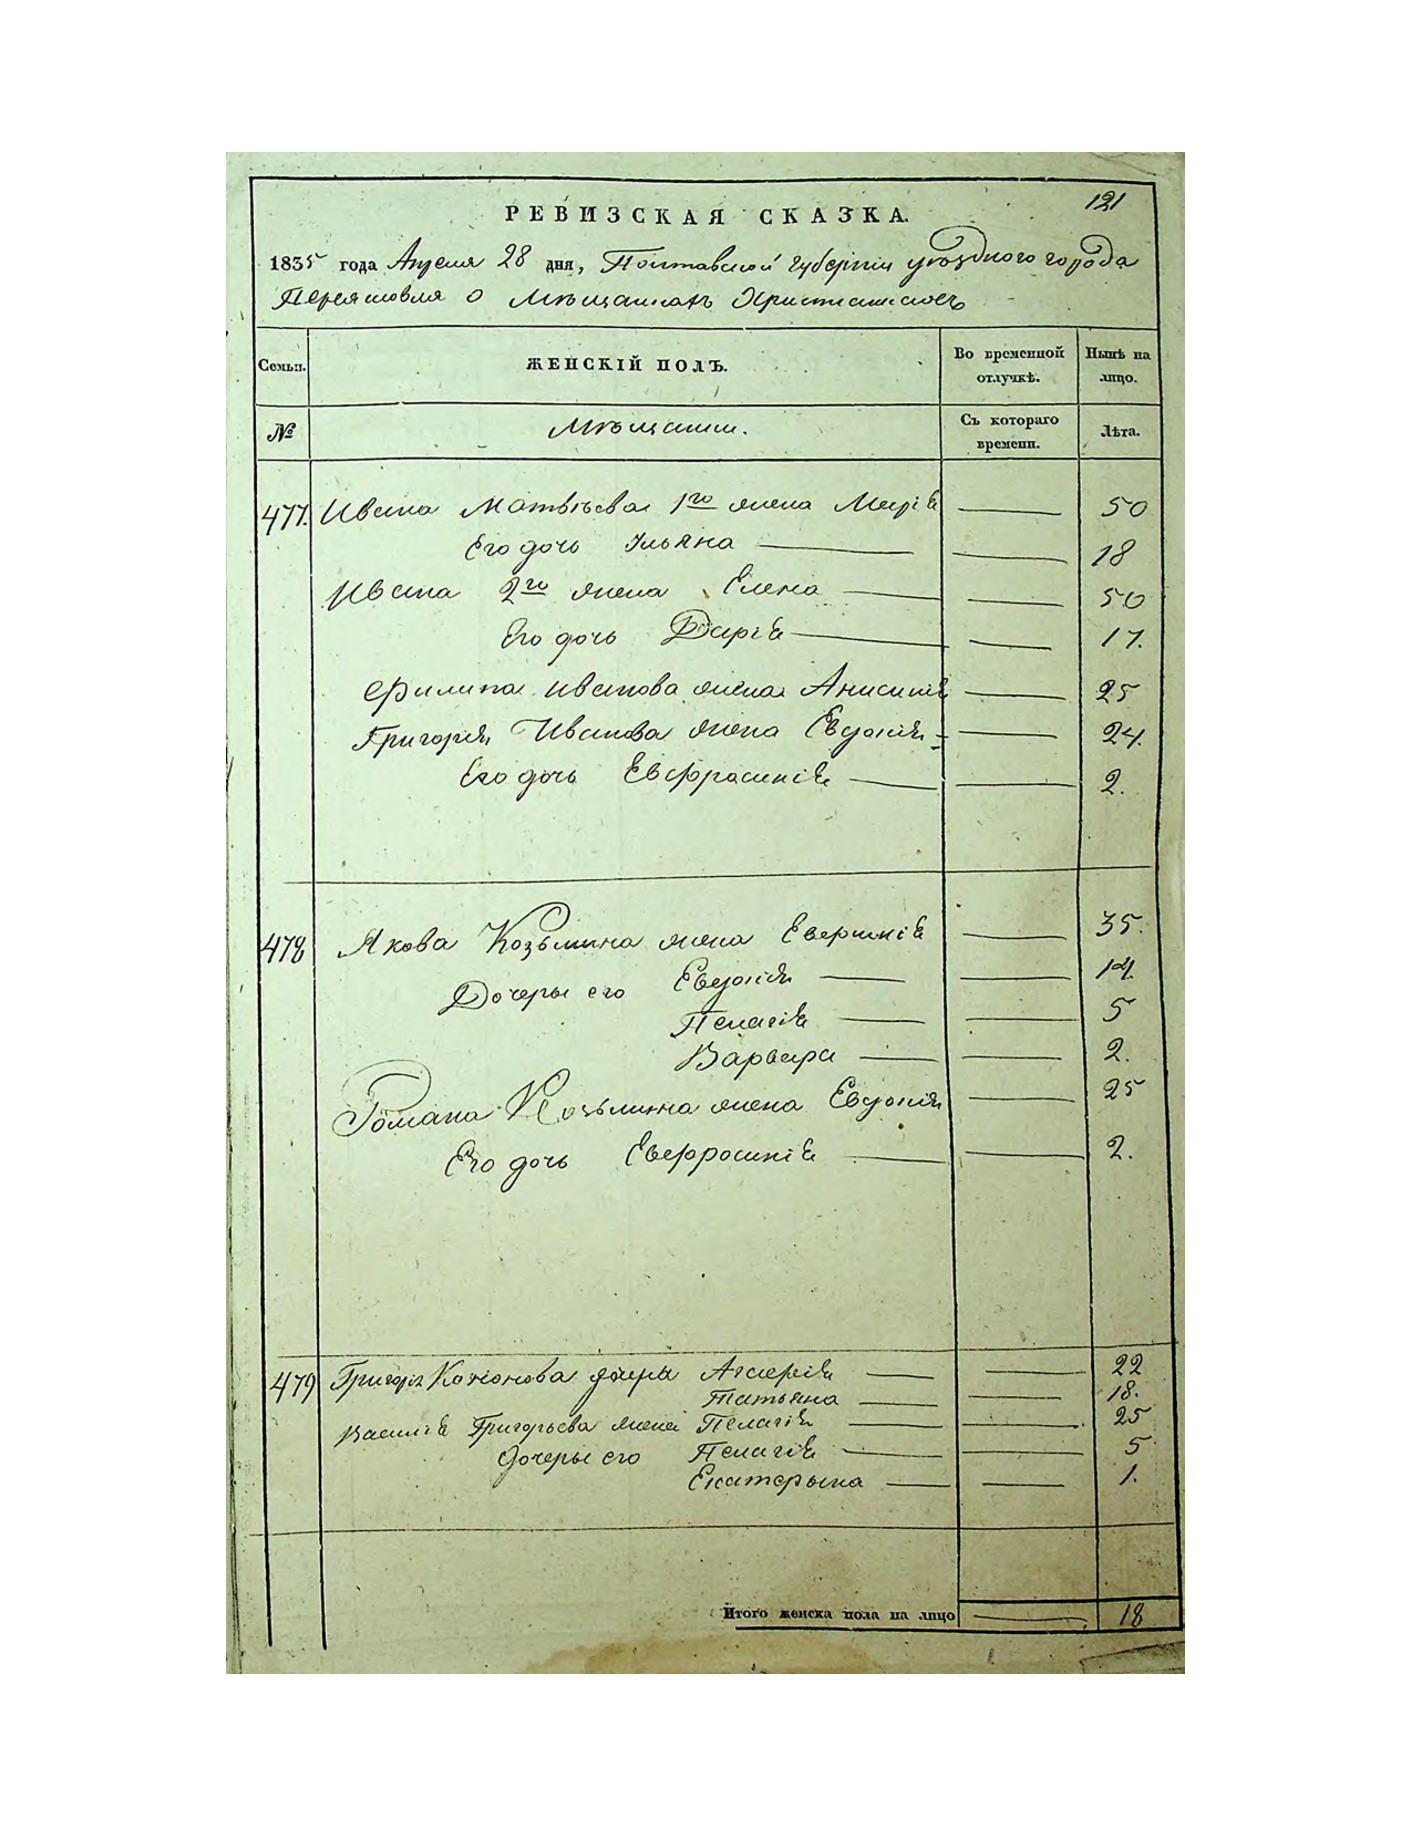 121
РЕВИЗСКАЯ СКАЗКА.
1835 года Апреля 28 дня, Полтавской губернии уѣзднаго города
Переяславля о Мѣщанахъ Христианахъ
Семьи. ЖЕНСКІЙ ПОЛЪ. Во временной отлучкѣ. Нынѣ на лицо.
№ Мѣщанки. Съ котораго времени. Лѣта.
477. Ивана Матвѣева 1го жена Марія 50
Его дочь Ульяна 18
Ивана 2го жена Елена 50
Его дочь Дарія 17.
Филипа Иванова жена Анисия 25
Григорія Иванова жена Евдокія 24.
Его дочь Евфросинія 2.
478 Якова Козьмина жена Евфросинія 35.
Дочеры его Евдокія 14.
Пелагія 5
Варвара 2.
Романа Козьмина жена Евдокія 25
Его дочь Евфросинія 2.
479 Григорія Кононова дочеры 22
Татьяна 18.
Василія Григорьева жена Пелагія 25
дочеры его Пелагія 5
Екатерына 1.
Итого женска пола на лицо 18